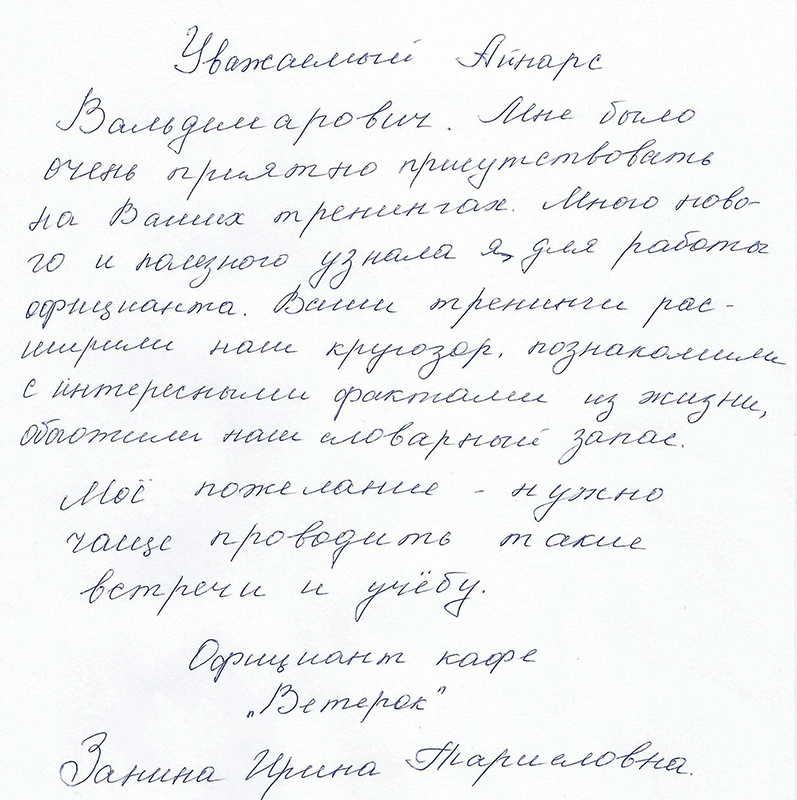 Уважаемый Айнарс
Вальдемарович. Мне было
очень приятно присутствовать
на Ваших тренингах. Много ново-
го и полезного узнала я, для работы
официанта. Ваши тренинги рас-
ширили наш кругозор, познакомили
с интересными фактами из жизни,
наш словарный запас.
Моё пожелание - нужно
чаще проводить такие
встречи и учёбу.
Официант кафе
„Ветерок"
Занина Ирина